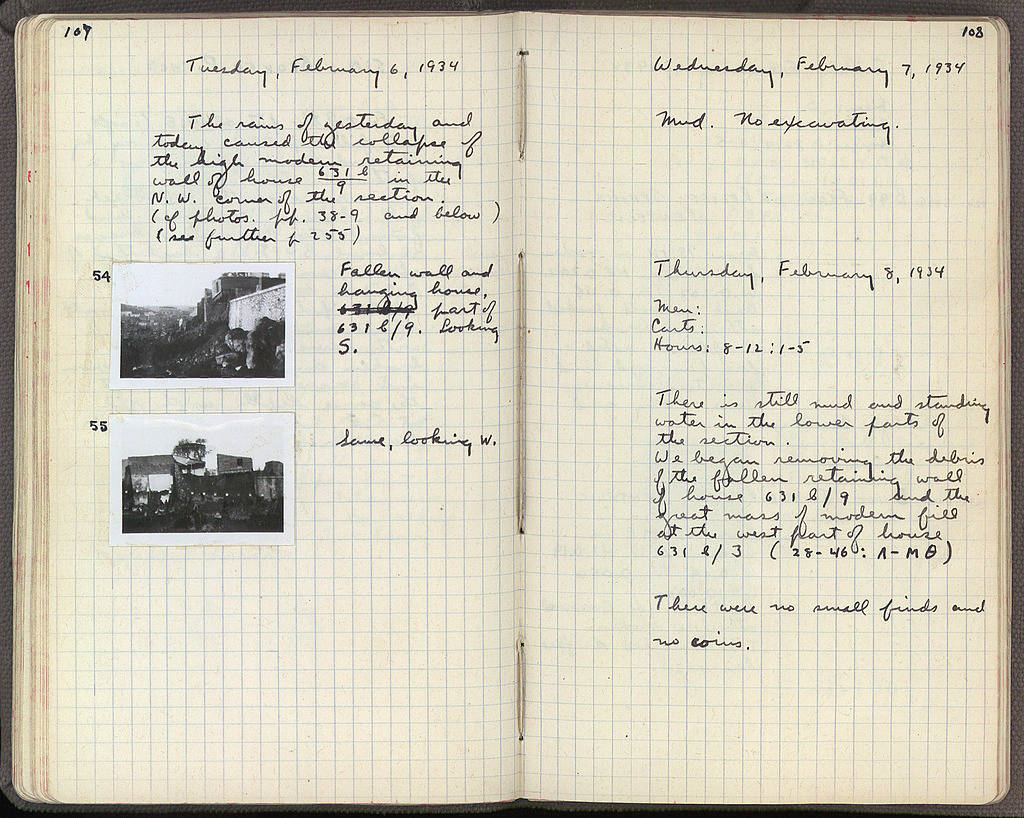 107
Tuesday, February 6, 1934
The rains of yesterday and
today caused the collapse of
the high modern retaining
wall of house 631 b/9 in the
N.W. corner of the section.
(cf photos. pp. 38-9 and below)
(see further p 255)
54
Fallen wall and
hanging house,
631 b/9 part of
631 b/9. Looking
S.
55
Same, looking W.
108
Wednesday, February 7, 1934
Mud. No excavating.
Thursday, February 8, 1934
Men:
Carts:
Hours: 8-12: 1-5
There is still mud and standing
water in the lower parts of
the section.
We began removing the debris
of the fallen retaining wall
of house 631 b/9 and the
great mass of modern fill
at the west part of house
631 b/3 (28-46: Λ-ΜΘ)
There were no small finds and
no coins.